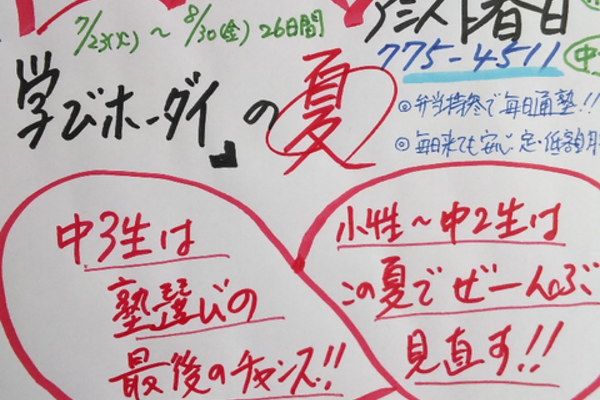 7/23(火)~8/30(金) 26日間
アミスト春日
775-4511
学びホーダイ」の夏
◎弁当持参で毎日通塾!!
◎毎日来ても安心 定・低額
中3生は
塾選びの
最後のチャンス!!
小4生~中2生は
この夏でぜーんぶ
見直す!!